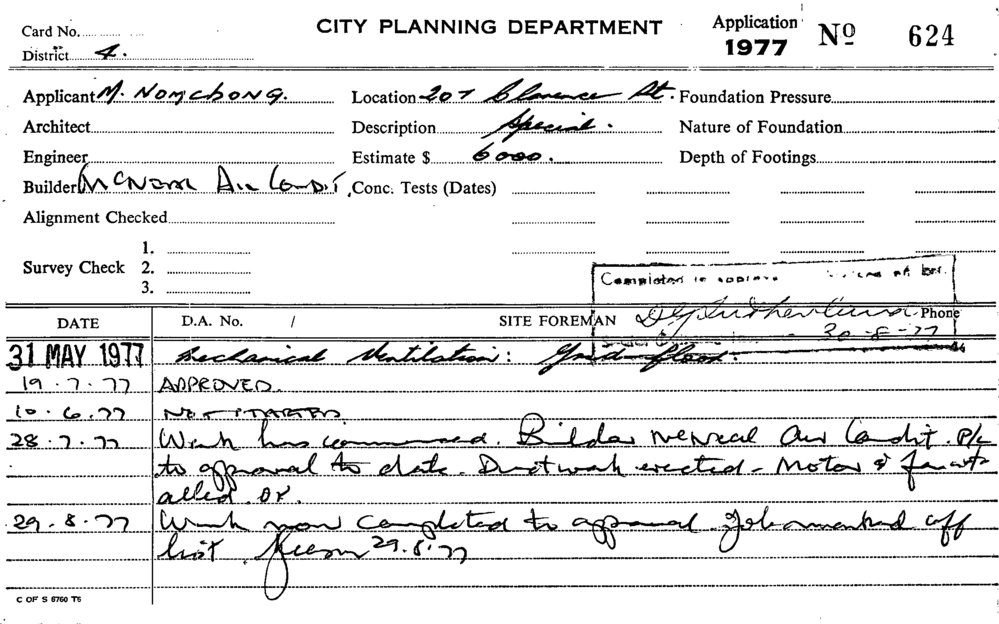 Card No.
CITY PLANNING DEPARTMENT
Application 1977 Nº 624
District 4.
Applicant M. NOMCHONG. Location 207 Clarence St. Foundation Pressure
Architect Description Special. Nature of Foundation
Engineer Estimate $ 6000. Depth of Footings
Builder Air Condit, Conc. Tests (Dates)
Alignment Checked
Survey Check 1. 2. 3.
Completed in
DATE D.A. No. / SITE FOREMAN Phone
30-8-77
31 MAY 1977 Mechanical Ventilation: Ground floor.
19.7.77 APPROVED.
10.6.77 NOT STARTED
28.7.77 Work has commenced. Builder Air Condit. P/L
to approval to date. Ductwork erected - Motor & fan inst-
alled. OK.
29.8.77 Work now completed to approval. Job marked off
list 29.8.77
C OF S 6760 T6